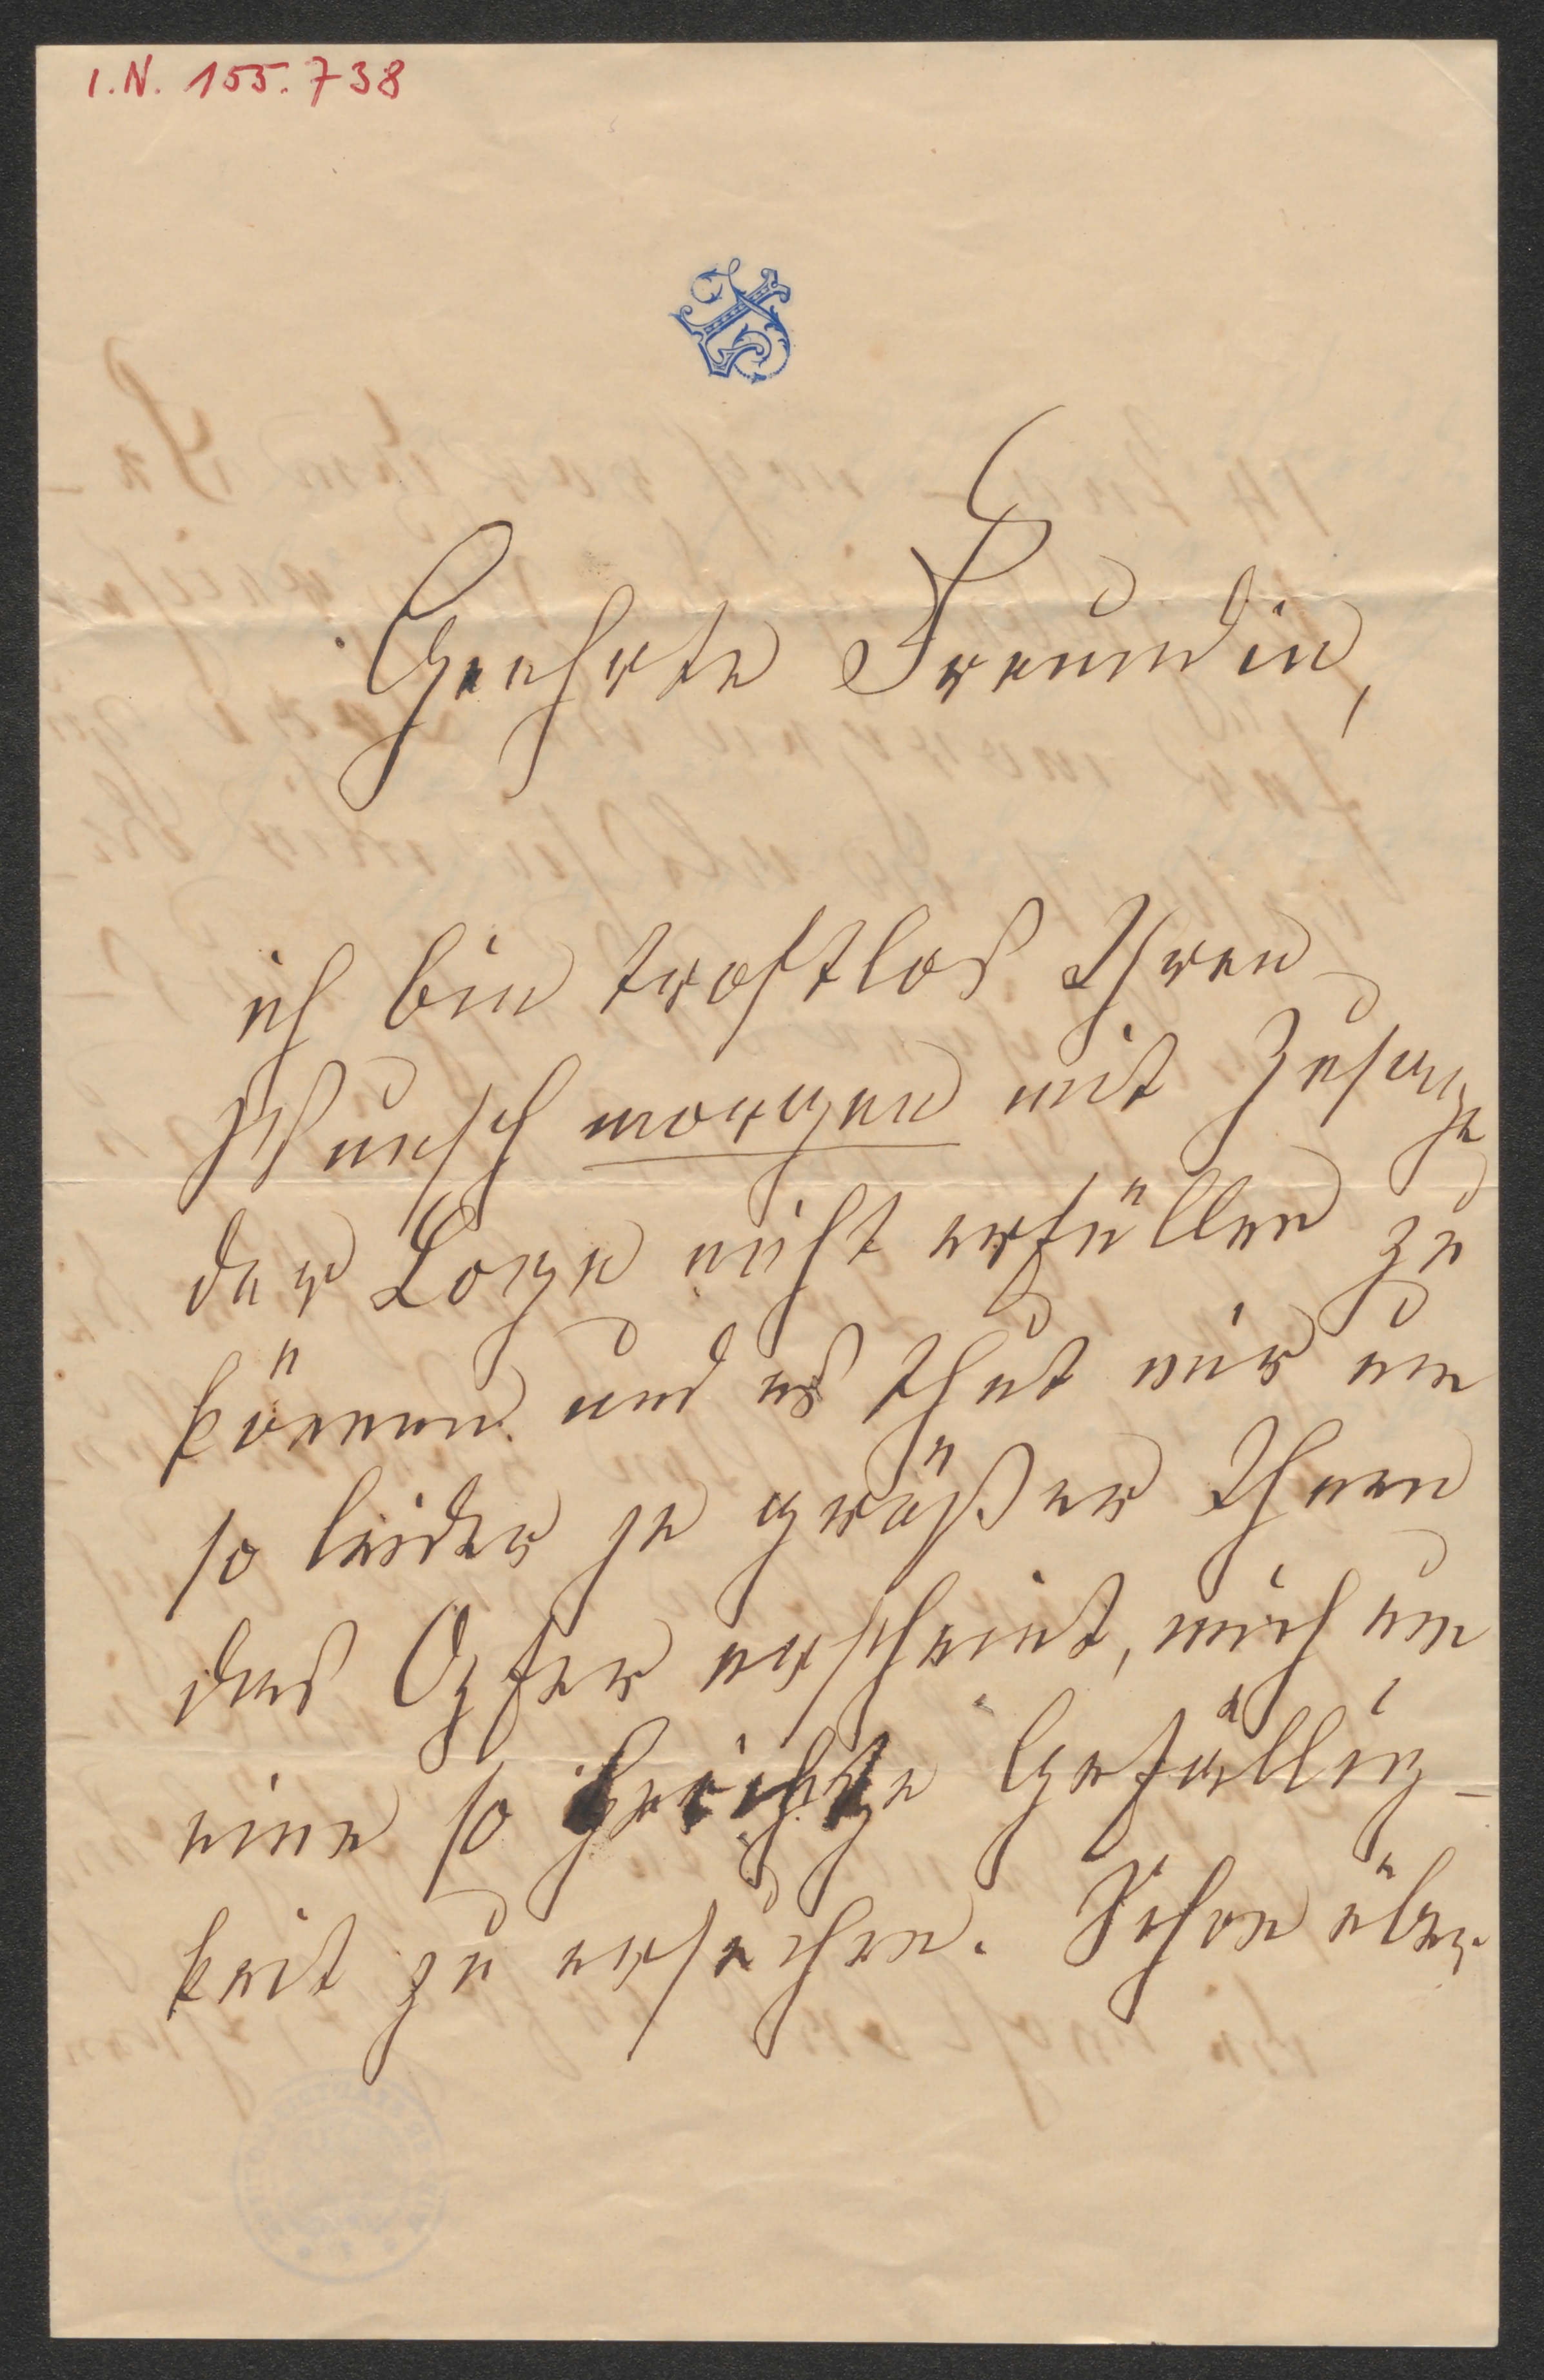 I.N. 155.738
Geehrte Freundin,
ich bin trostlos Ihren
Wunsch morgen mit Zusage
der Loge nicht erfüllen zu
können und es thut mir um
so leider je größer Ihnen
das Opfer erscheint, mich um
eine so Gefällig-
keit zu ersuchen. Schon über-